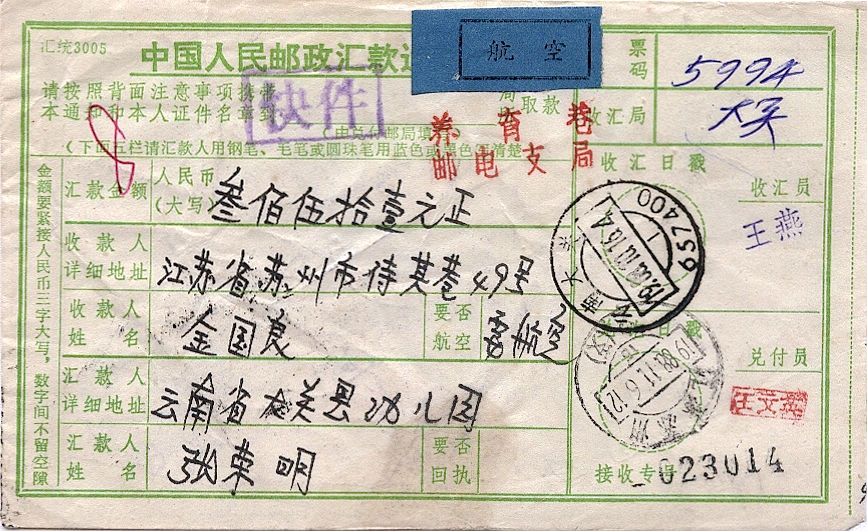 汇统3005
中国人民邮政汇款通
航 空
票码
5994
请按照背面注意事项
局取款
快件
本通知和本人证件名章到
收汇局
大关
养育巷
邮电支局
8
(下面五栏请汇款人用钢笔、毛笔或圆珠笔用蓝色或黑色填清楚
收汇日戳
收汇员
王燕
金额要紧接人民币三字大写,数字间不留空隙
汇款金额
人民币
(大写)
叁佰伍拾壹元正
657400
1988.10.16.4
云南大关
收款人
详细地址
江苏省苏州市侍其巷49号
收款人
姓名
金国良
要否
航空
要航空
日戳
兑付员
1988.11.6.12
江苏苏州
王文英
汇款人
详细地址
云南省大关县幼儿园
汇款人
姓名
张东明
要否
回执
接收专号
023014